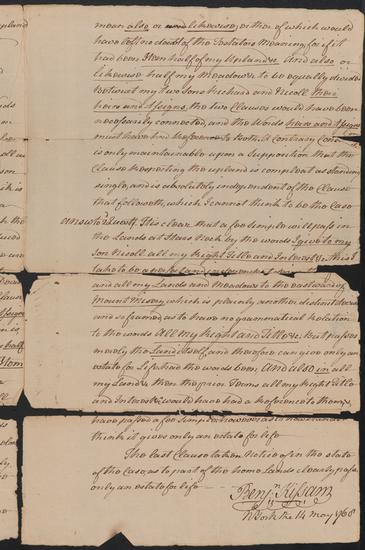 mean also or likewise, either of which would
have left no doubt of the Testators Meaning, for if it
had been Item half of my Uplands And also or
likewise half my Meadows to be equally divided
betwixt my two Sons Richard and Nicoll their
heirs and assigns, the two Clauses would have been
necessarily connected, and the Words heirs and assigns
must have had Reference to Both. A Contrary
is only maintainable upon a Supposition that the
Clause the upland is compleat as standing
single, and is absolutely independent of the Clause
that followeth, which I cannot think to be the Case
It is clear that a fee simple will pass in
the Lands at by the words I give to my
Son Nicoll all my Right Title and Interest &c. this I
take to be a
and all my Lands and Meadows to the eastward of
Mount Misery which is plainly another distinct
and so framed as to have no gramatical Relation
to the words All my Right and Title &c. But passes
merely the Land itself, and therefore can give only an
estate for Life had the words been And also in all
my Lands &c then the prior Terms all my Right Title
and Interest would have had a Reference to them, &
have passed a fee Simple, however as it now stands I
think it gives only an estate for life
The last Clause taken Notice of in the state
of the Case as to part of the home Lands clearly passes
only an estate for life
Benjn Kissam
NYork the 14 may 1768